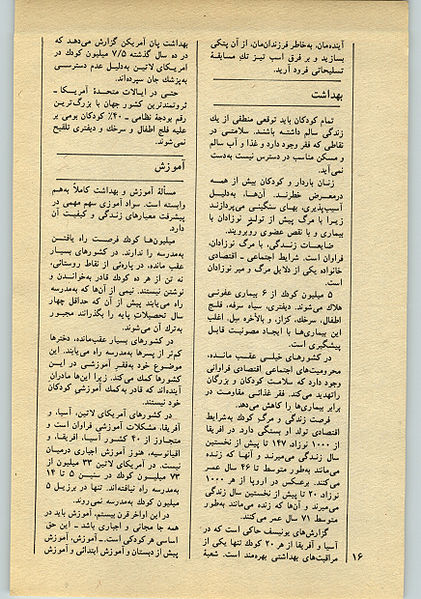 آینده‌مان، به‌خاطر فرزندان‌مان، از آن پتکی
بسازید و بر فرق اسب تیز تک مسابقهٔ
تسلیحاتی فرود آرید.
بهداشت
تمام کودکان باید توقعی منطقی از یک
زندگی سالم داشته باشند. سلامتی در
نقاطی که فقر وجود دارد و غذا و آب سالم
و مسکن مناسب در دسترس نیست به‌دست
نمی‌آید.
زنان باردار و کودکان بیش از همه
درمعرض خطرند. آن‌ها، به‌دلیل
آسیب‌پذیری، بهای سنگینی می‌پردازند
زیرا با مرگ پیش از تولد نوزادان یا
بیماری و یا نقص عضوی روبرویند.
ضایعات زندگی، با مرگ نوزادان،
فراوان است. شرایط اجتماعی ـ اقتصادی
خانواده یکی از دلایل مرگ و میر نوزادان
است.
۵ میلیون کودک از ۶ بیماری عفونی
هلاک می‌شوند. دیفتری، سیاه سرفه، فلج
اطفال، سرخک، کزاز، و بالاخره سل. اغلب
این بیماری‌ها با ایجاد مصونیت قابل
پیشگیری است.
در کشورهای خیلی عقب مانده،
محرومیت‌های اجتماعی اقتصادی فراوانی
وجود دارد که سلامت کودکان و بزرگان
راتهدید می‌کند. فقر غذائی مقاومت در
برابر بیماری‌ها را کاهش می‌دهد.
فرصت زندگی و مرگ کودک به‌شرایط
اقتصادی تولد او بستگی دارد. در افریقا
از ۱۰۰۰ نوزاد، ۱۴۷ تا پیش از نخستین
سال زندگی می‌میرند و آنها که زنده
می‌مانند به‌طور متوسط تا ۴۶ سال عمر
می‌کنند. برعکس در اروپا از هر ۱۰۰۰
نوزاد، ۲۰ تا پیش از نخستین سال زندگی
می‌میرند و آن‌ها که زنده می‌مانند به‌طور
متوسط ۷۱ سال عمر می‌کنند.
گزارش‌های یونیسف حاکی است که در
آسیا و آفریقا از هر ۲۰ کودک تنها یکی از
مراقبت‌های بهداشتی بهره‌مند است. شعبهٔ
۱۶
بهداشت پان آمریکن گزارش می‌دهد که
در ده سال گذشته ۷/۵ میلیون کودک در
امریکای لاتین به‌دلیل عدم دسترسی
به‌پزشک جان سپرده‌اند.
حتی در ایالات متحدهٔ آمریکا ـ
ثروتمندترین کشور جهان با بزرگ‌ترین
رقم بودجهٔ نظامی ـ ۴۰٪ کودکان بومی بر
علیه فلج اطفال و سرخک و دیفتری تلقیح
نمی‌شوند.
آموزش
مسألهٔ آموزش و بهداشت کاملاً به‌هم
وابسته است. سواد آموزی سهم مهمی در
پیشرفت معیارهای زندگی و کیفیت آن
دارد.
میلیون‌ها کودک فرصت راه یافتن
به‌مدرسه را ندارند. در کشورهای بسیار
عقب مانده، در پاره‌ئی از نقاط روستائی،
نه تن از هر ده کودک قادر به‌خواندن و
نوشتن نیستند. نیمی از آن‌ها که به‌مدرسه
راه می‌یابند پیش از آن که حداقل چهار
سال تحصیلات پایه را بگذرانند مجبور
به‌ترک آن می‌شوند.
در کشورهای بسیار عقب‌مانده، دخترها
کم‌تر از پسرها به‌مدرسه راه می‌یابند. این
موضوع خود به‌فقر آموزشی در این
کشورها کمک می‌کند. زیرا این‌ها مادران
آینده‌اند که قادر به‌کمک آموزشی کودکان
خود نیستند.
در کشورهای آمریکای لاتین، آسیا، و
آفریقا، مشکلات آموزشی فراوان است و
متجاوز از ۴۰ کشور آسیا، افریقا، و
اقیانوسیه، هنوز آموزش اجباری درمیان
نیست. در آمریکای لاتین ۳۳ میلیون از
۷۳ میلیون کودک در سنین ۵ تا ۱۴
به‌مدرسه راه نیافته‌اند. تنها در برزیل ۵
میلیون کودک به‌مدرسه نمی‌روند.
در این اواخر قرن بیستم، آموزش باید در
همه جا مجانی و اجباری باشد ـ این حق
اساسی هر کودکی است. ـ آموزش، آموزش
پیش از دبستان و آموزش ابتدائی و آموزش